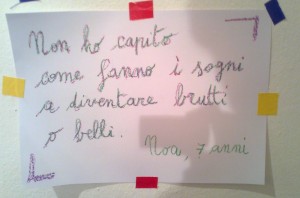 Non ho capito
come fanno i sogni
a diventare brutti
o belli.
Noa, 7 anni